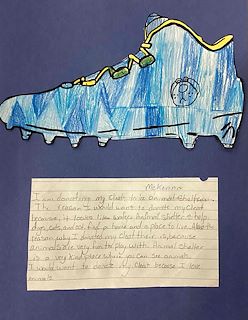 McKenna
I am donating my cleat to be an animal shelter.
The reason I would want to donate my cleat
because, it looks like water. Animal shelters help
dogs, cats, and ect. find a home and a place to live. Also the
reason why I donated my cleat their is because
animals are very fun to play with. Animal shelter
is a very kind place when you can see animals.
I would want to donat my cleat because I love
animals.